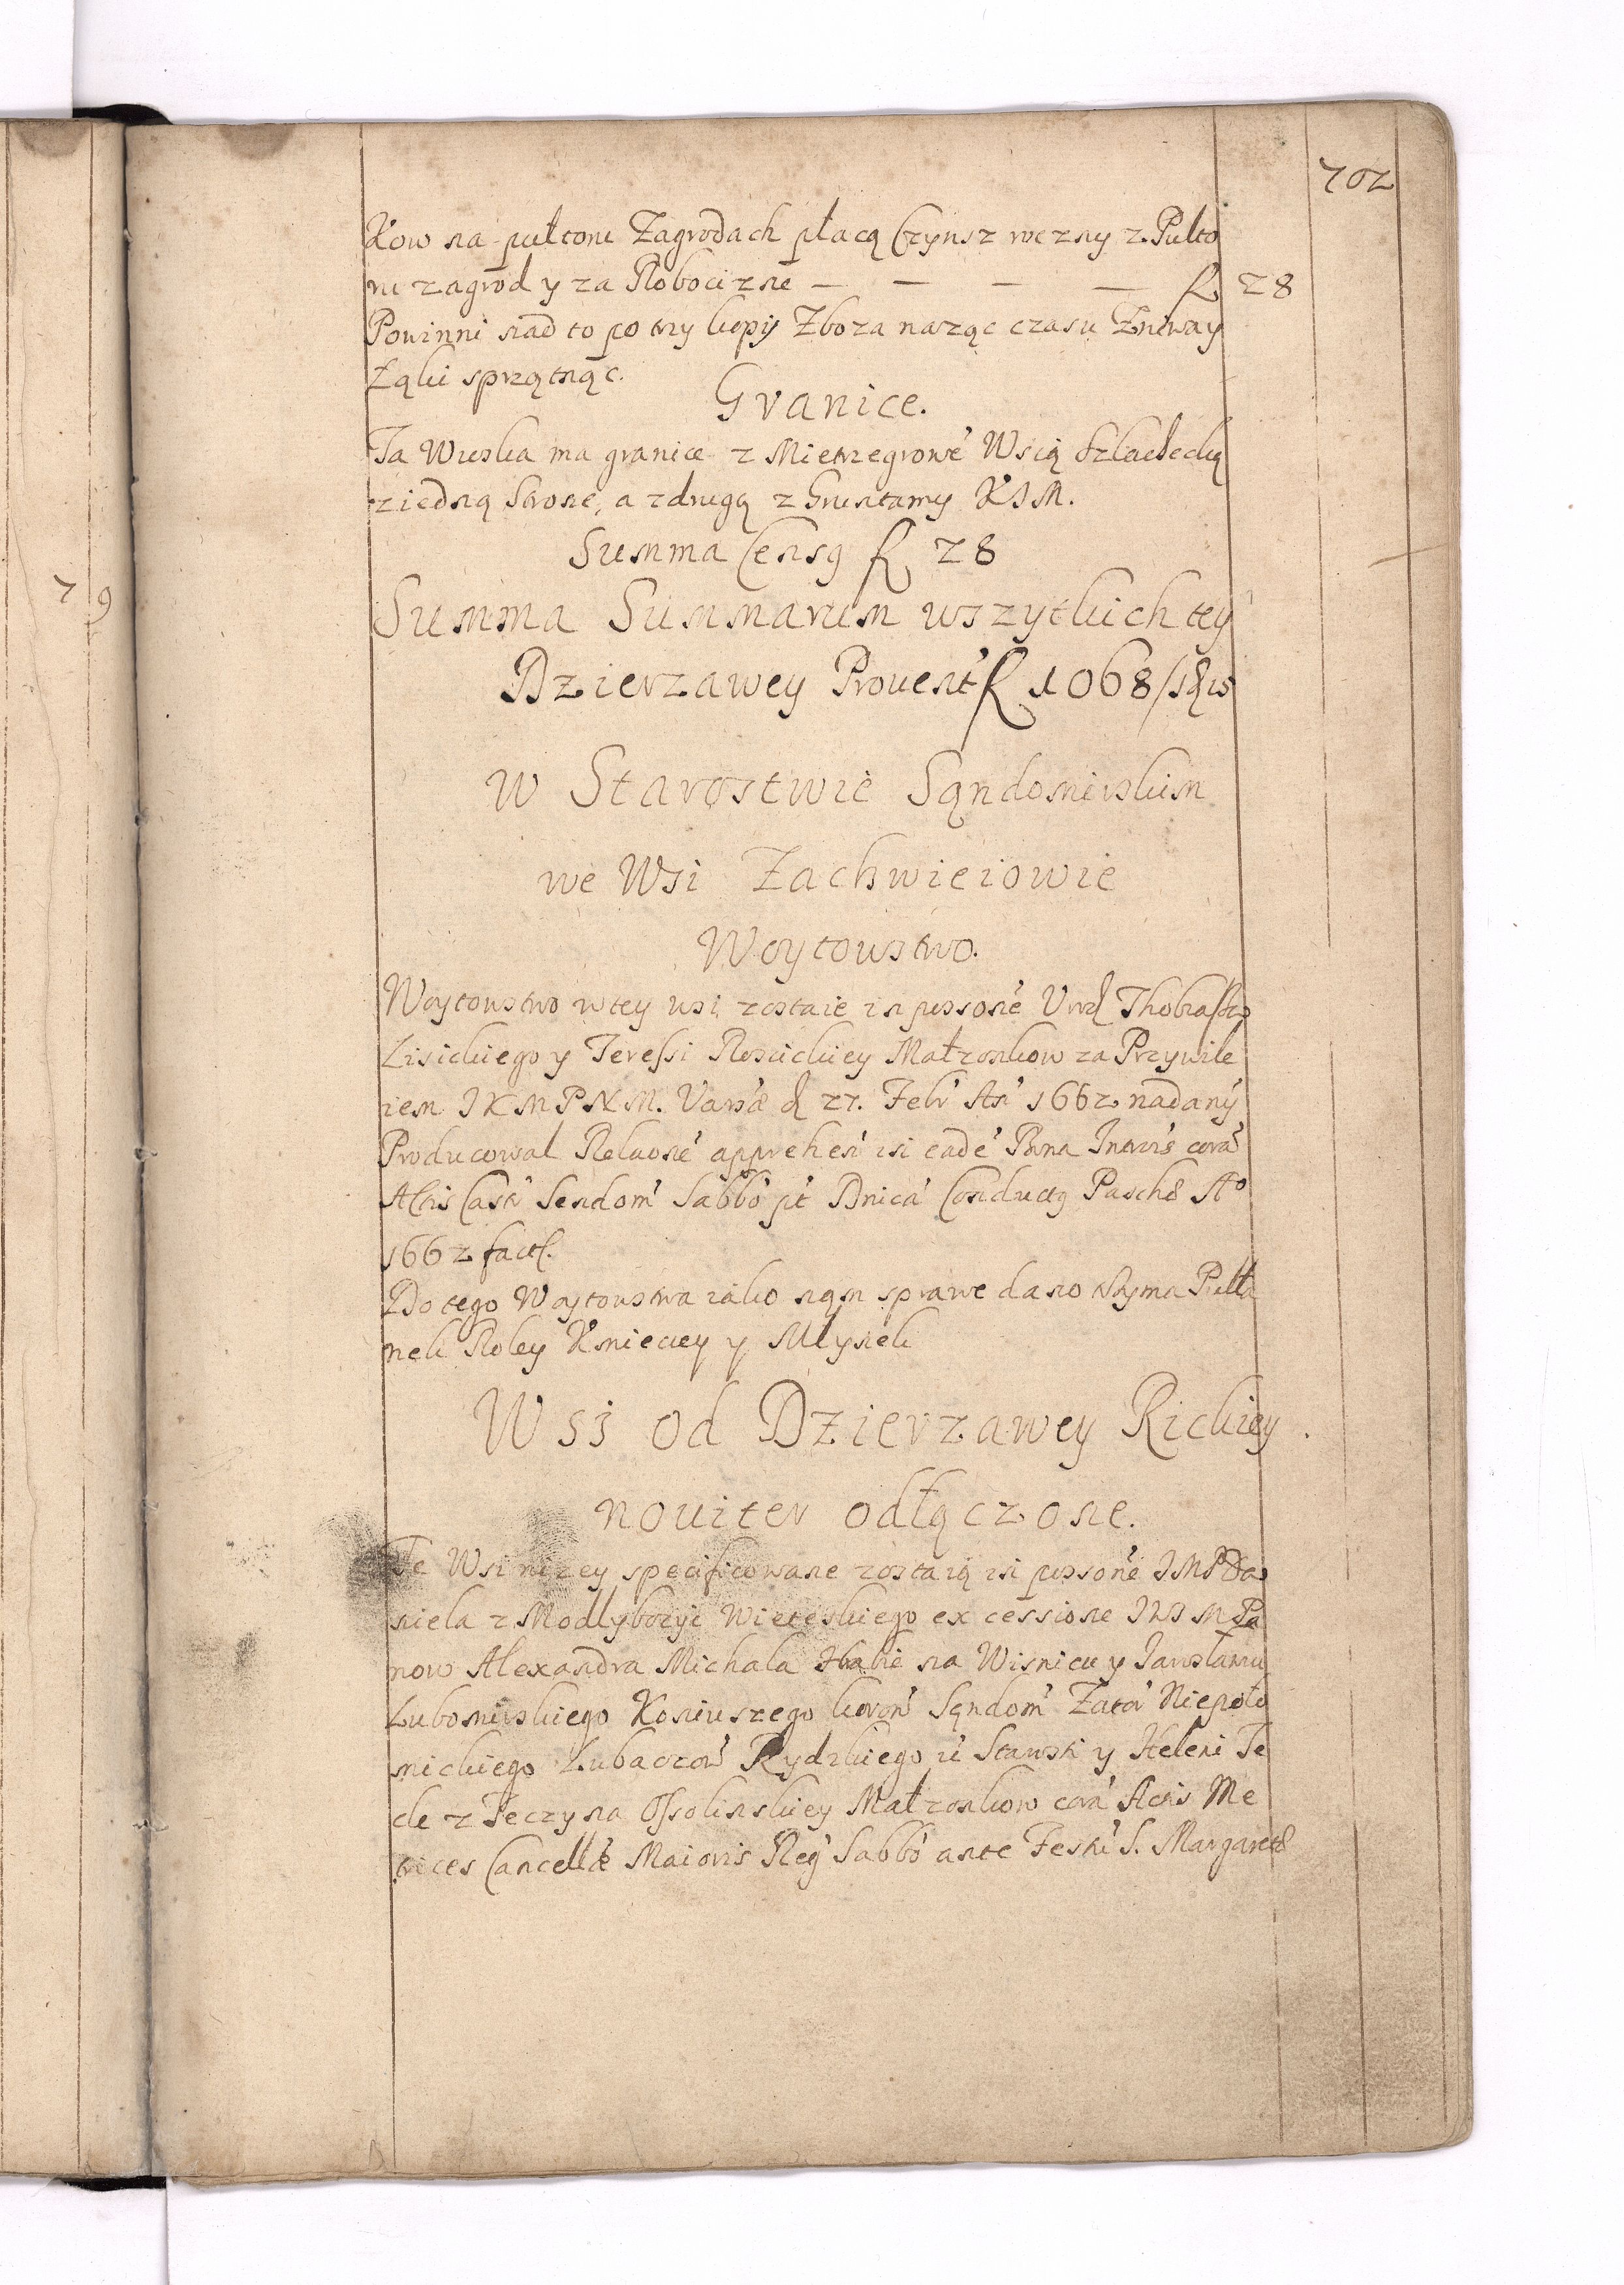 702
Kow na pułtoru Zagrodach płacą Czynsz roczny z Pułto
ru zagrod y za Robociznę — — — — fl 28
Powinni nad to po trzy kopy Zboza naząc czasu Zniway
Łąki sprzątnąc.
Granice.
Ta Wieska ma granice z Mietrzegrowé Wsią Szlachecką
z iedną Stronę, a z drugą z Gruntamy KJM.
Summa Censq fl 28
Summa Summarum wszytkich tey
Dzierzawey Prouent fl 1068/18
W Starostwie Sąndomirskim
we Wsi Zachwieiowie
Woytowstwo.
Woytowstwo w tey wsi zostaie in possoné Urod Thobiasza
Lisickiego y Teressi Rosickiey Małzonkow za Przywile
iem JKMPNM. Varsæ d 27. Febr An 1662 nadaný
Producował Relaoné apprehen isi eadé Bona Introis corá
Actis Castr Sendom Sabbó pt Dnicá Conductq Paschæ Aº
1662 fact.
Do tego Woytowstwa iako nąm sprawe dano Trzyma Pułła
nek Roley Kmiecey y Młynek
Wsi od Dzierzawey Rickiey.
nouiter odłączone.
Te Wsi nizey specificowane zostaią in possoné JMP Da
niela z Modlyborzyi Wieteskiego ex cessione JWJM Pa
now Alexandra Michala Hrabie na Wisniczu y Jarosławiu
Lubomirskiego Koniuszego koron Sąndom Zator Niepoło
mickiego Lubaczow Ryczkiego & Starosti y Heleni Te
cle z Teczyna Ossolinskiey Małzonkow corá Actis Me
trices Cancellæ Maioris Reg Sabbó ante Festu S. Margaretæ
7 9